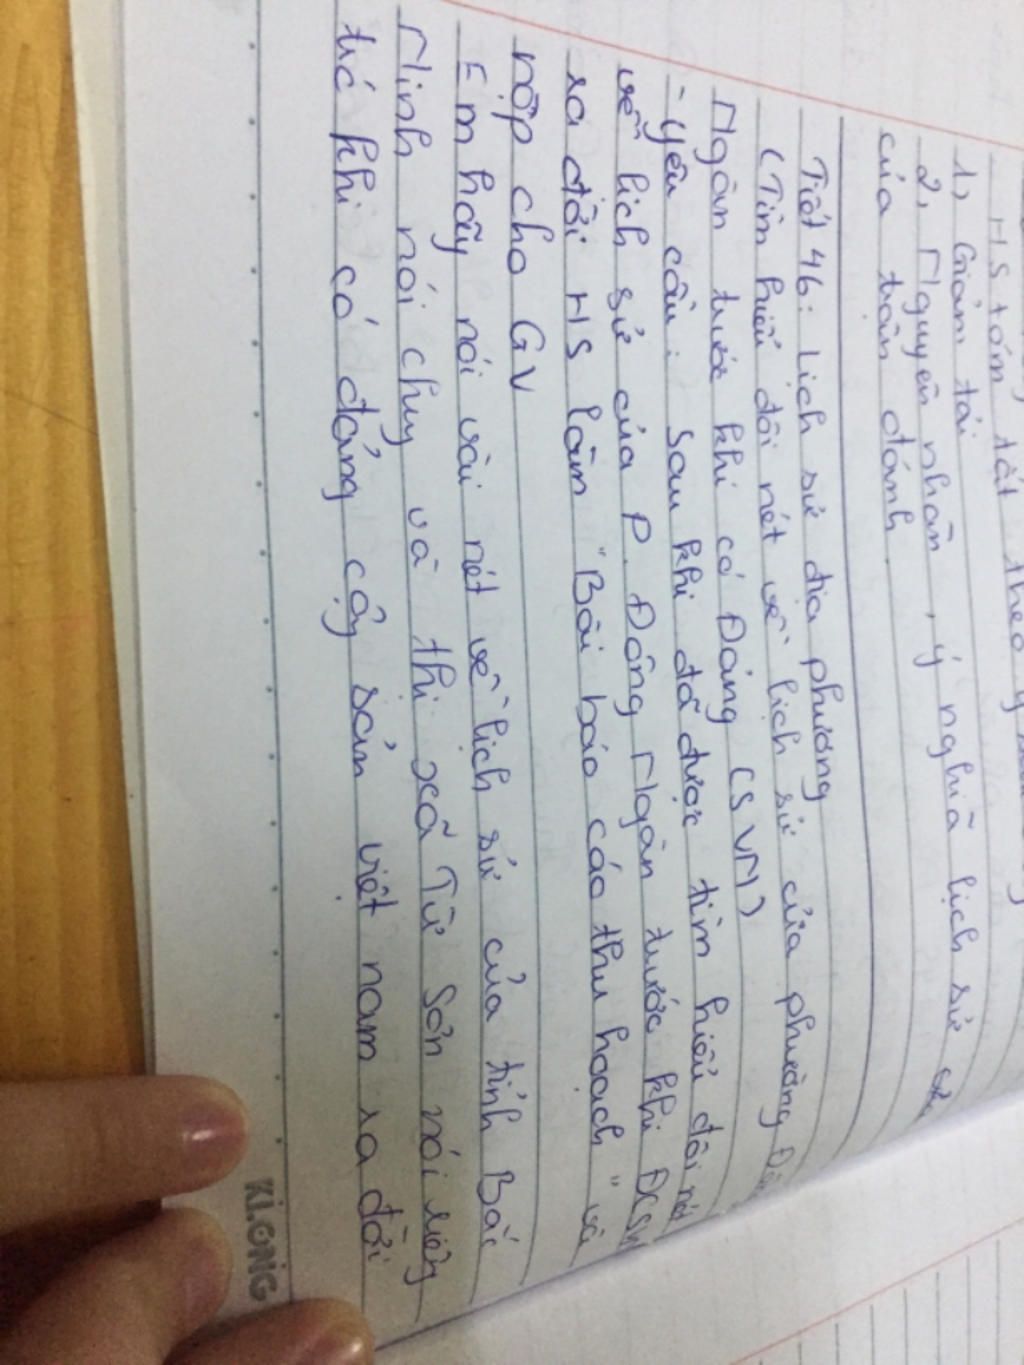 HS tóm tắt theo ý
1, Giảm tải
2, Nguyên nhân, ý nghĩa lịch sử
của trận đánh.
Tiết 46: Lịch sử địa phương
(Tìm hiểu đôi nét về lịch sử của phường
Ngàn trước khi có Đảng CSVN)
- Yêu cầu: Sau khi đã được tìm hiểu đôi nét
về lịch sử của P. Đông Ngàn trước khi ĐCSVN
ra đời HS làm "Bài báo cáo thu hoạch" và
nộp cho GV
Em hãy nói vài nét về lịch sử của tỉnh Bắc
Ninh nói chug và thị xã Từ Sơn nói riêng
trc khi có đảng cộg sản việt nam ra đời
KLONG